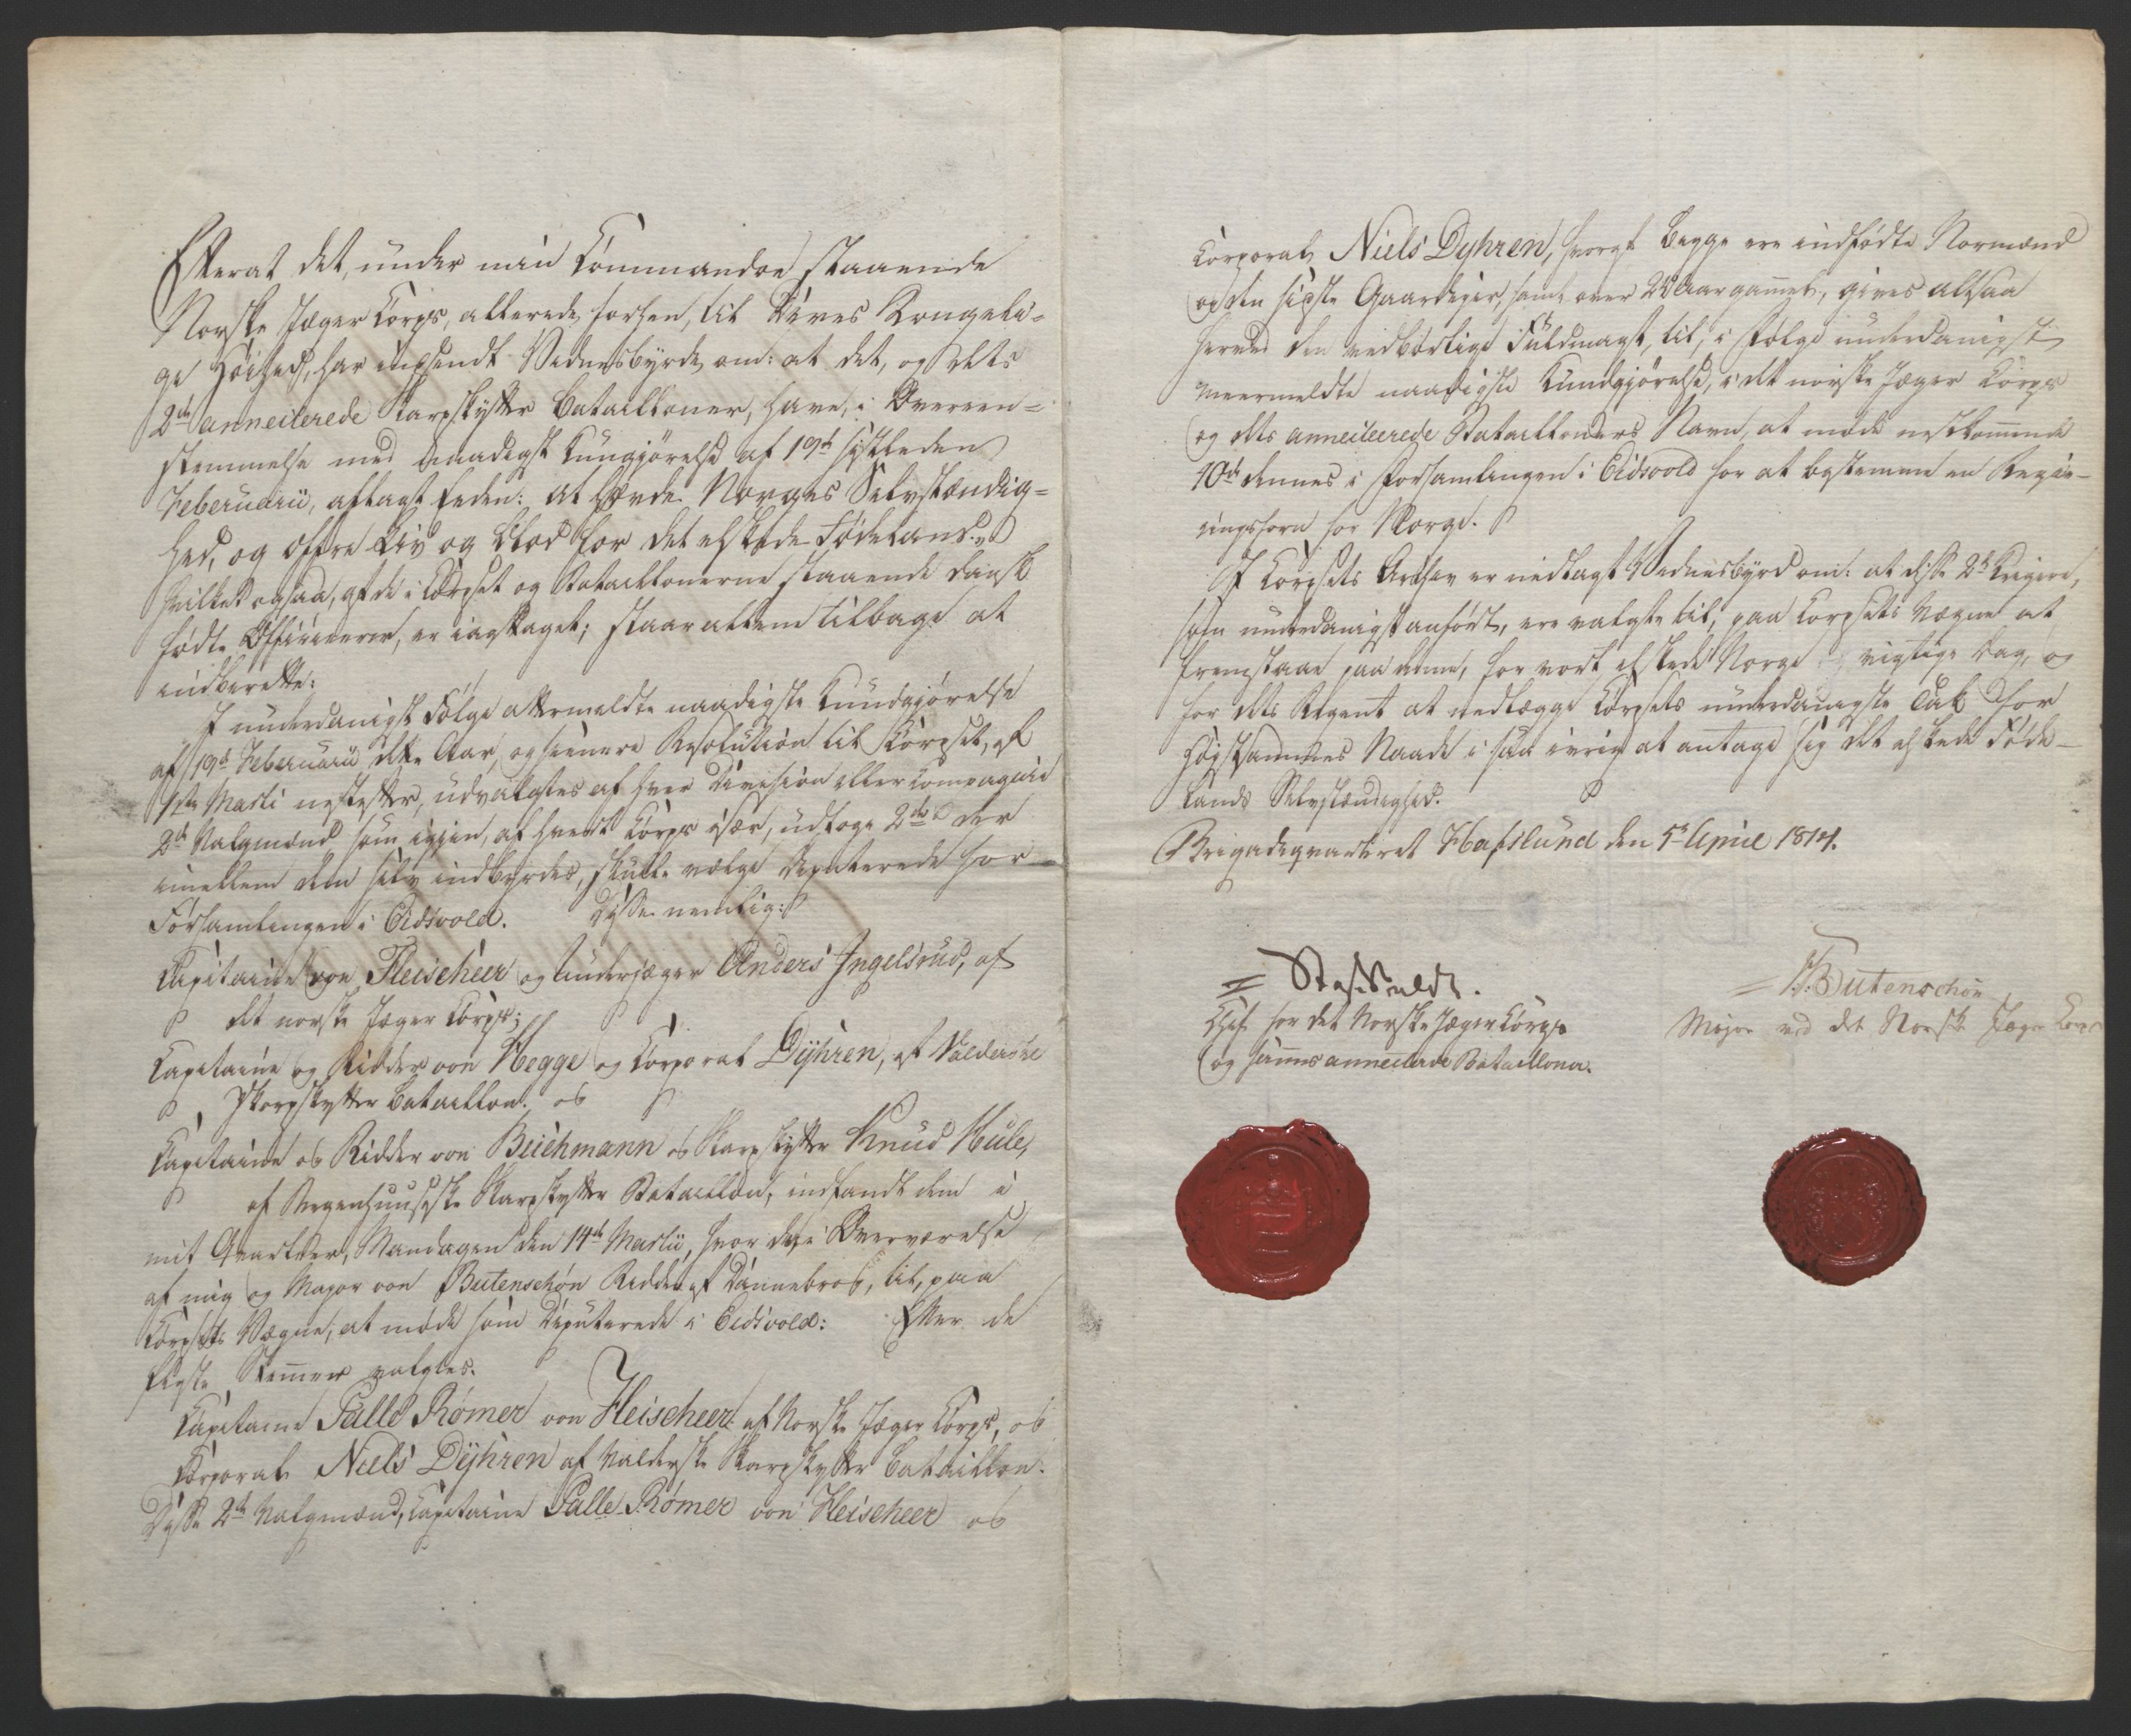 Efterat det, under min Commandoe staaende
Norske Jæger Corps, allerede forhen, til Deres Kongeli-
ge Høihed, har indsendt Vidnesbyrd om: at det, og dets
2de annecterede Skarpskytter Batailloner, have, i Overeen-
stemmelse med naadigst Kungjørelse af 19de sidstleden
Februarii, aflagt Eeden: at hævde Norges Selvstændig-
hed, og offre Liv og Blod for det elskede Fødeland
hvilket ogsaa, af de i Corpset og Bataillonerne staaende dansk
fødte Officierer, er iagttaget; staar allene tilbage at
indberette:
I underdanigst Følge ovenmeldte naadigste Kundgjørelse
af 19de Februarii dette Aar, og senere Resolution til Corpset, af
1ste Marti nestefter, udvalgtes af hver Division eller Compagnie
2de Valgmænd som igjen, af hvert Corps især, udtoge 2de der
imellem dem selv indbyrdes, skulle vælge Deputerede for
Forsamlingen i Eidsvold. Disse nemlig:
Capitaine von Fleischeer og Underjæger Anders Ingelsrud, af
det norske Jæger Corps;
Capitaine og Ridder von Hegge og Corporal Dyhren, af Valderske
Skarpskytter Bataillon. og
Capitaine og Ridder von Beichmann og Skarpskytter Knud Hule,
af Aggerhuusiske Skarpskytter Bataillon, indfandt dem i
mit Qvarteer, Mandagen den 14de Martii, hvor der i Overværelse
af mig og Major von Butenschøn Ridder af Dannebrog, til, paa
Corpsets Vegne, at møde som Deputerede i Eidsvold: Efter de
fleste Stemmer valgtes.
Capitaine Palle Rømer von Fleischeer af Norske Jæger Corps, og
Corporal Niels Dyhren af Valderske Skarpskytter Bataillon.
Disse 2de Valgmænd, Capitaine Palle Rømer von Fleischeer og
Corporal Niels Dyhren, hvoraf begge ere indfødte Normænd
og den sidste Gaardejer, samt over 25 Aar gammel, gives altsaa
herved den vedbørlige Fuldmagt, til, i Følge underdanigst
meermeldte naadigste Kundgjørelse, i det norske Jæger Corps
og dets annecterede Bataillioners Navn, at møde nestkommende
10de dennes i Forsamlingen i Eidsvold for at bestemme en Regie-
ringsform for Norge.
I Corpsets Archiv er nedlagt Vidnesbyrd om: at disse 2de Krigere,
som underdanigst anført, ere valgte til, paa Corpsets Vegne at
fremstaae paa denne, for vort elskede Norge vigtige Dag, og
for dets Regent at nedlægge Corpsets underdanigste Tak for
Høistsammes Naade i saa ivrig at antage sig det elskede Føde-
lands Selvstændighed.
Brigadeqvarteret Hafslund den 5te April 1814.
Staffeldt.
Chef for det Norske Jæger Corps
og sammes annecterede Batailloner.
Butenschøn
Major ved det Norske Jæger Corps